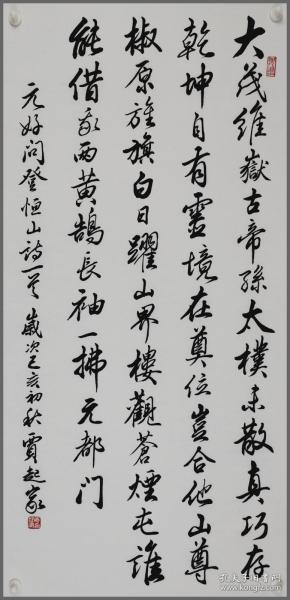 大茂維嶽古帝孫太樸未散真巧存
乾坤自有靈境在奠位豈合他山尊
椒原旌旗白日躍山界樓觀蒼煙屯誰
能借我兩黃鵠長袖一拂元都門
元好問登恒山詩一首 歲次己亥初秋 賈起家
孔夫子旧书网